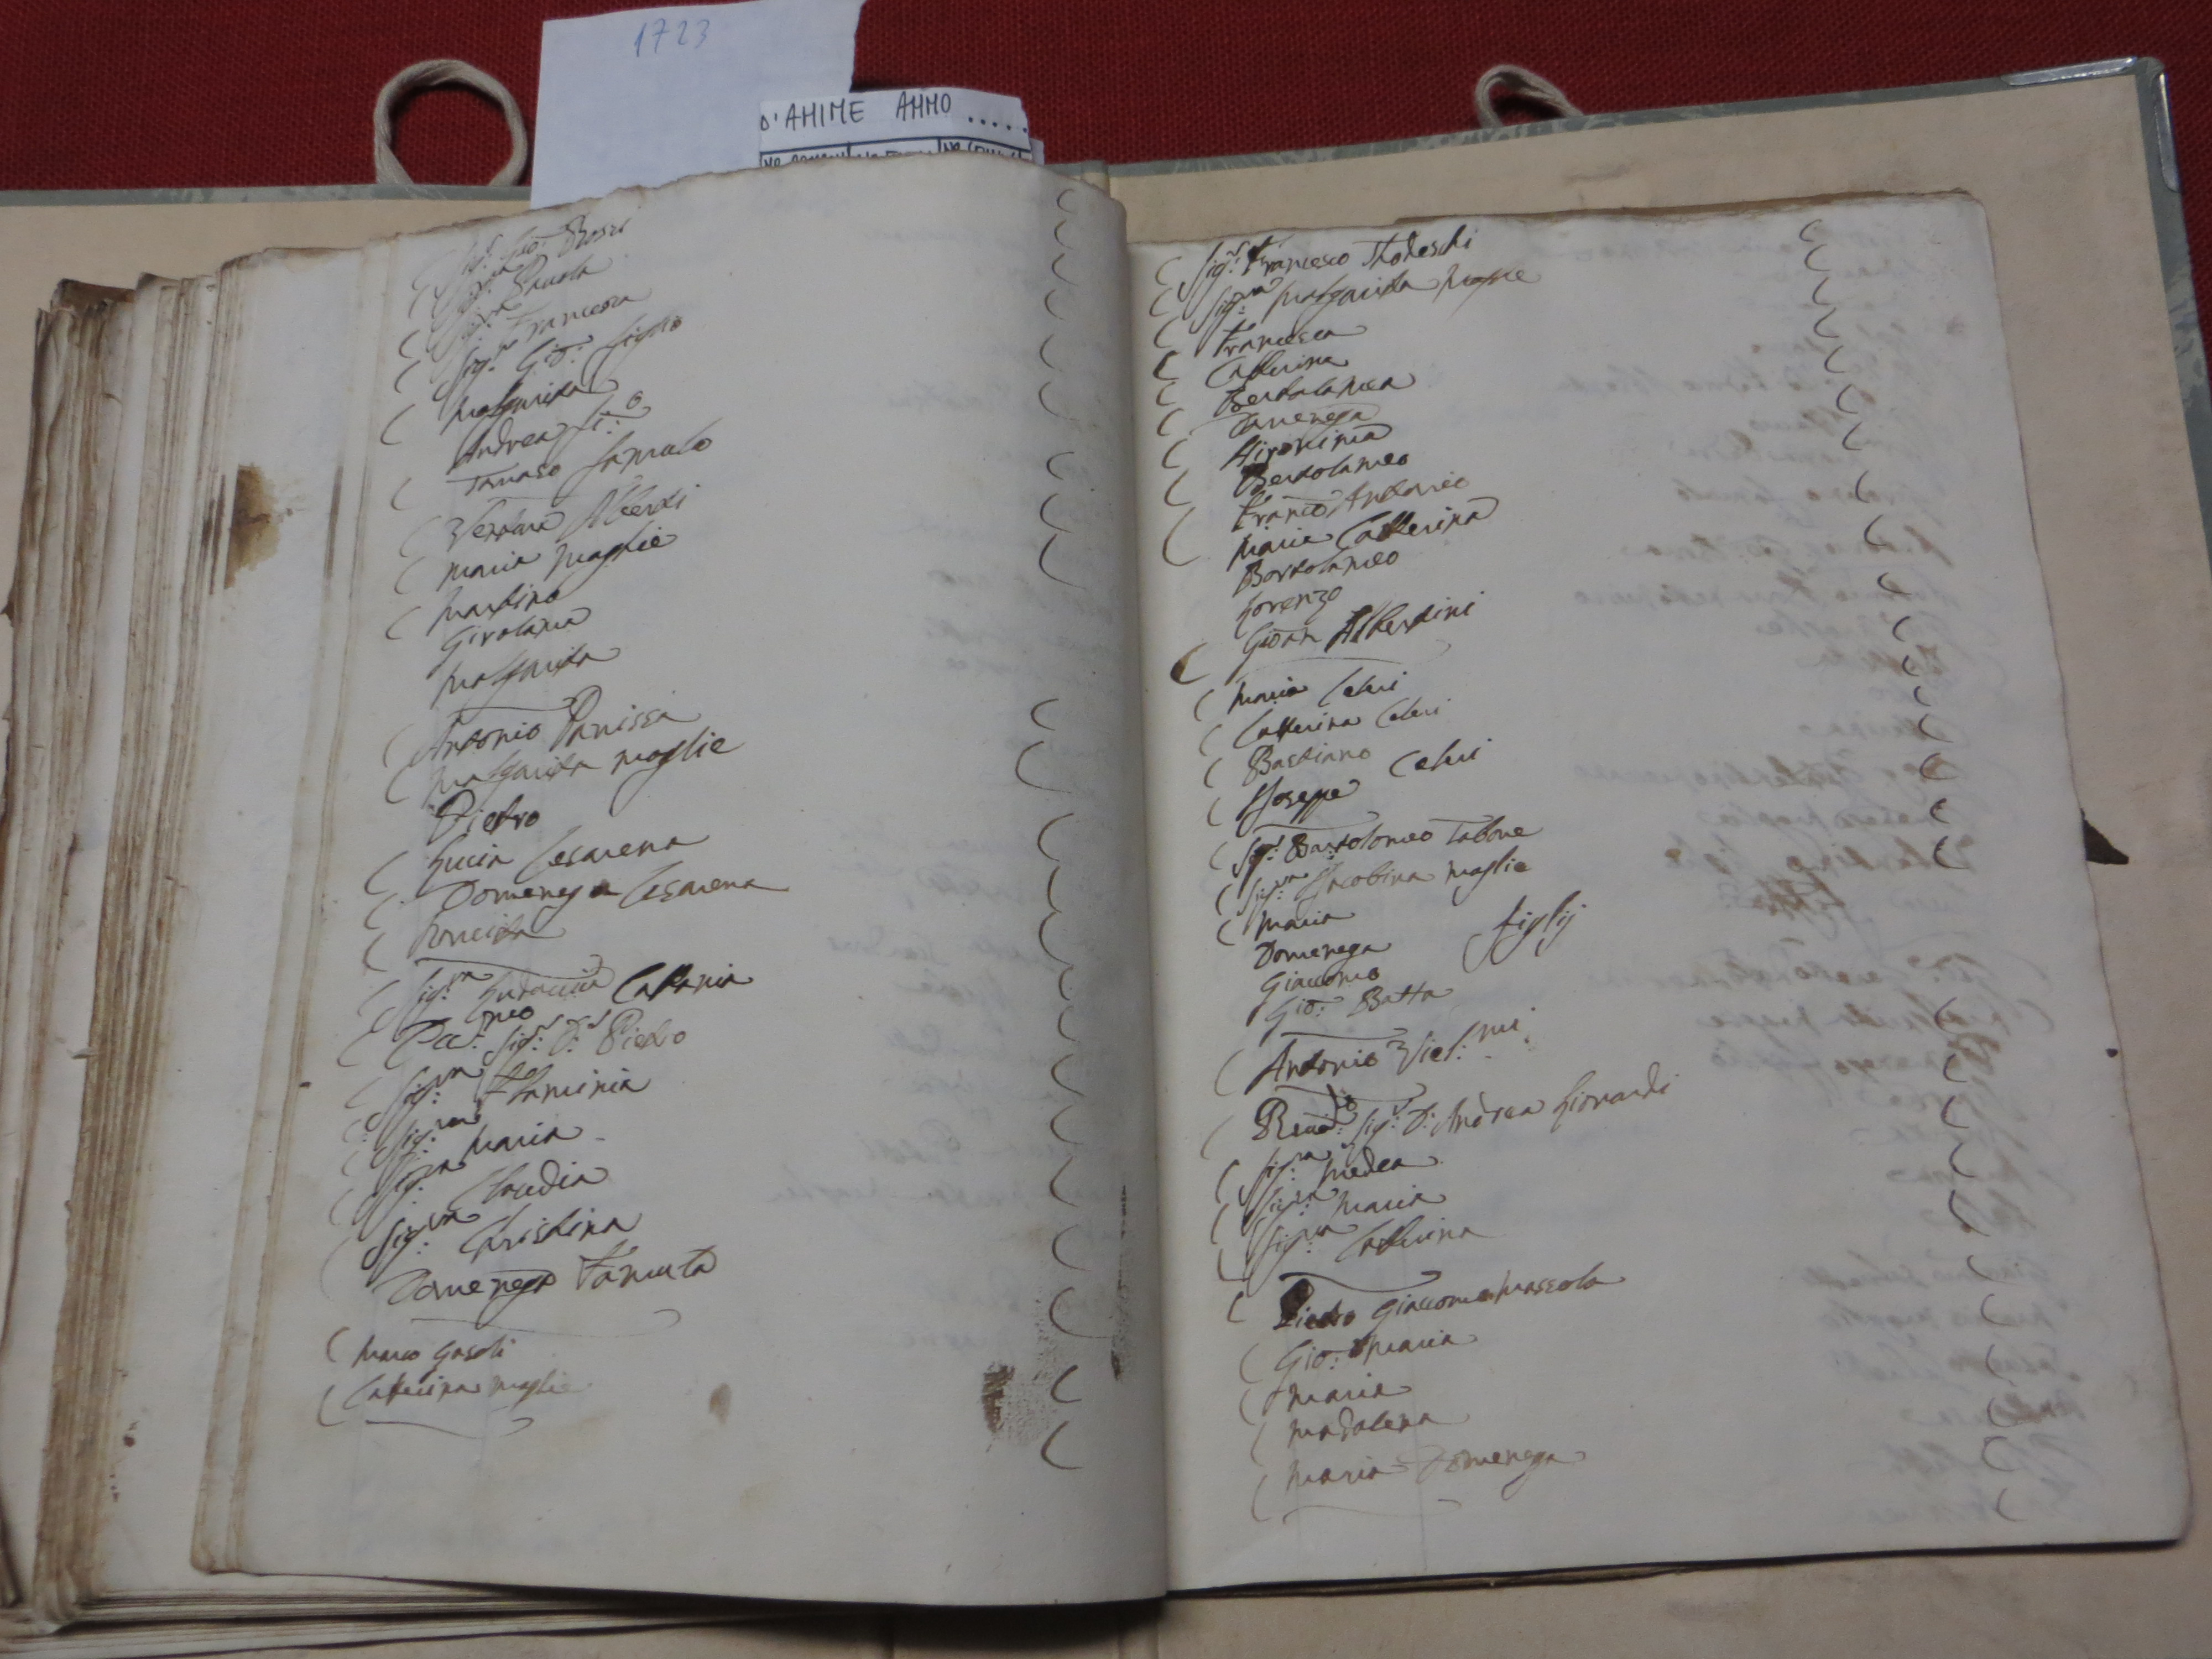 1723
D'ANIME ANNO .....
Sig.r Gio: Rossi
Sig.ra Pauola
Sig.ra Francesca
Sig.r Gio: figlio
Margarita
Andrea
Tomaso famulo
Alberti
Maria Moglie
Martino
Girolama
Margarita
Antonio Panissa
Margarita moglie
Pietro
Lucia Cesarena
Domenega Cesarena
Sig.ra Cattania
Sig.r D: Pietro
Sig.ra Flaminia
Sig.ra Maria
Sig.ra Claudia
Sig.ra Christina
Domenega famula
Marco Gasoli
Catterina moglie
Sig.r Francesco Thodeschi
Sig.ra Margarita Moglie
Francesca
Catterina
Bertolamea
Domenega
Hironima
Bertolameo
Franco Antonio
Maria Catterina
Bortolameo
Lorenzo
Gioan Albertini
Maria Celui
Catterina Celui
Bastiano
Gioseppe Celui
Sig.r Bartolomeo Tabone
Sig.ra Jacobina moglie
Maria
Domenega figlij
Giaccomo
Gio: Batta
Antonio
Reuid.o Sig.r D: Andrea Lionardi
Sig.ra Medea
Sig.ra Maria
Sig.ra Catterina
Pietro Giaccomo Mascola
Gio: Maria
Maria
Madalena
Maria Domenega